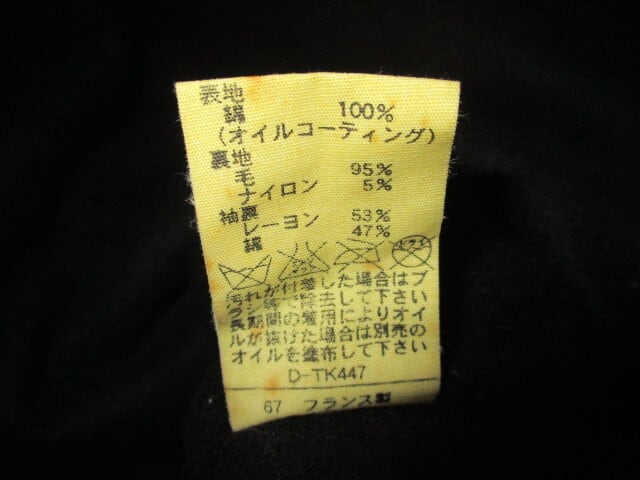 表地
綿 100%
(オイルコーティング)
裏地
毛 95%
ナイロン 5%
袖裏
レーヨン 53%
綿 47%
ドライ
汚れが付着した場合はブ
ラシ等で除去して下さい
長期間の着用によりオイ
ルが抜けた場合は別売の
オイルを塗布して下さい
D-TK447
67 フランス製